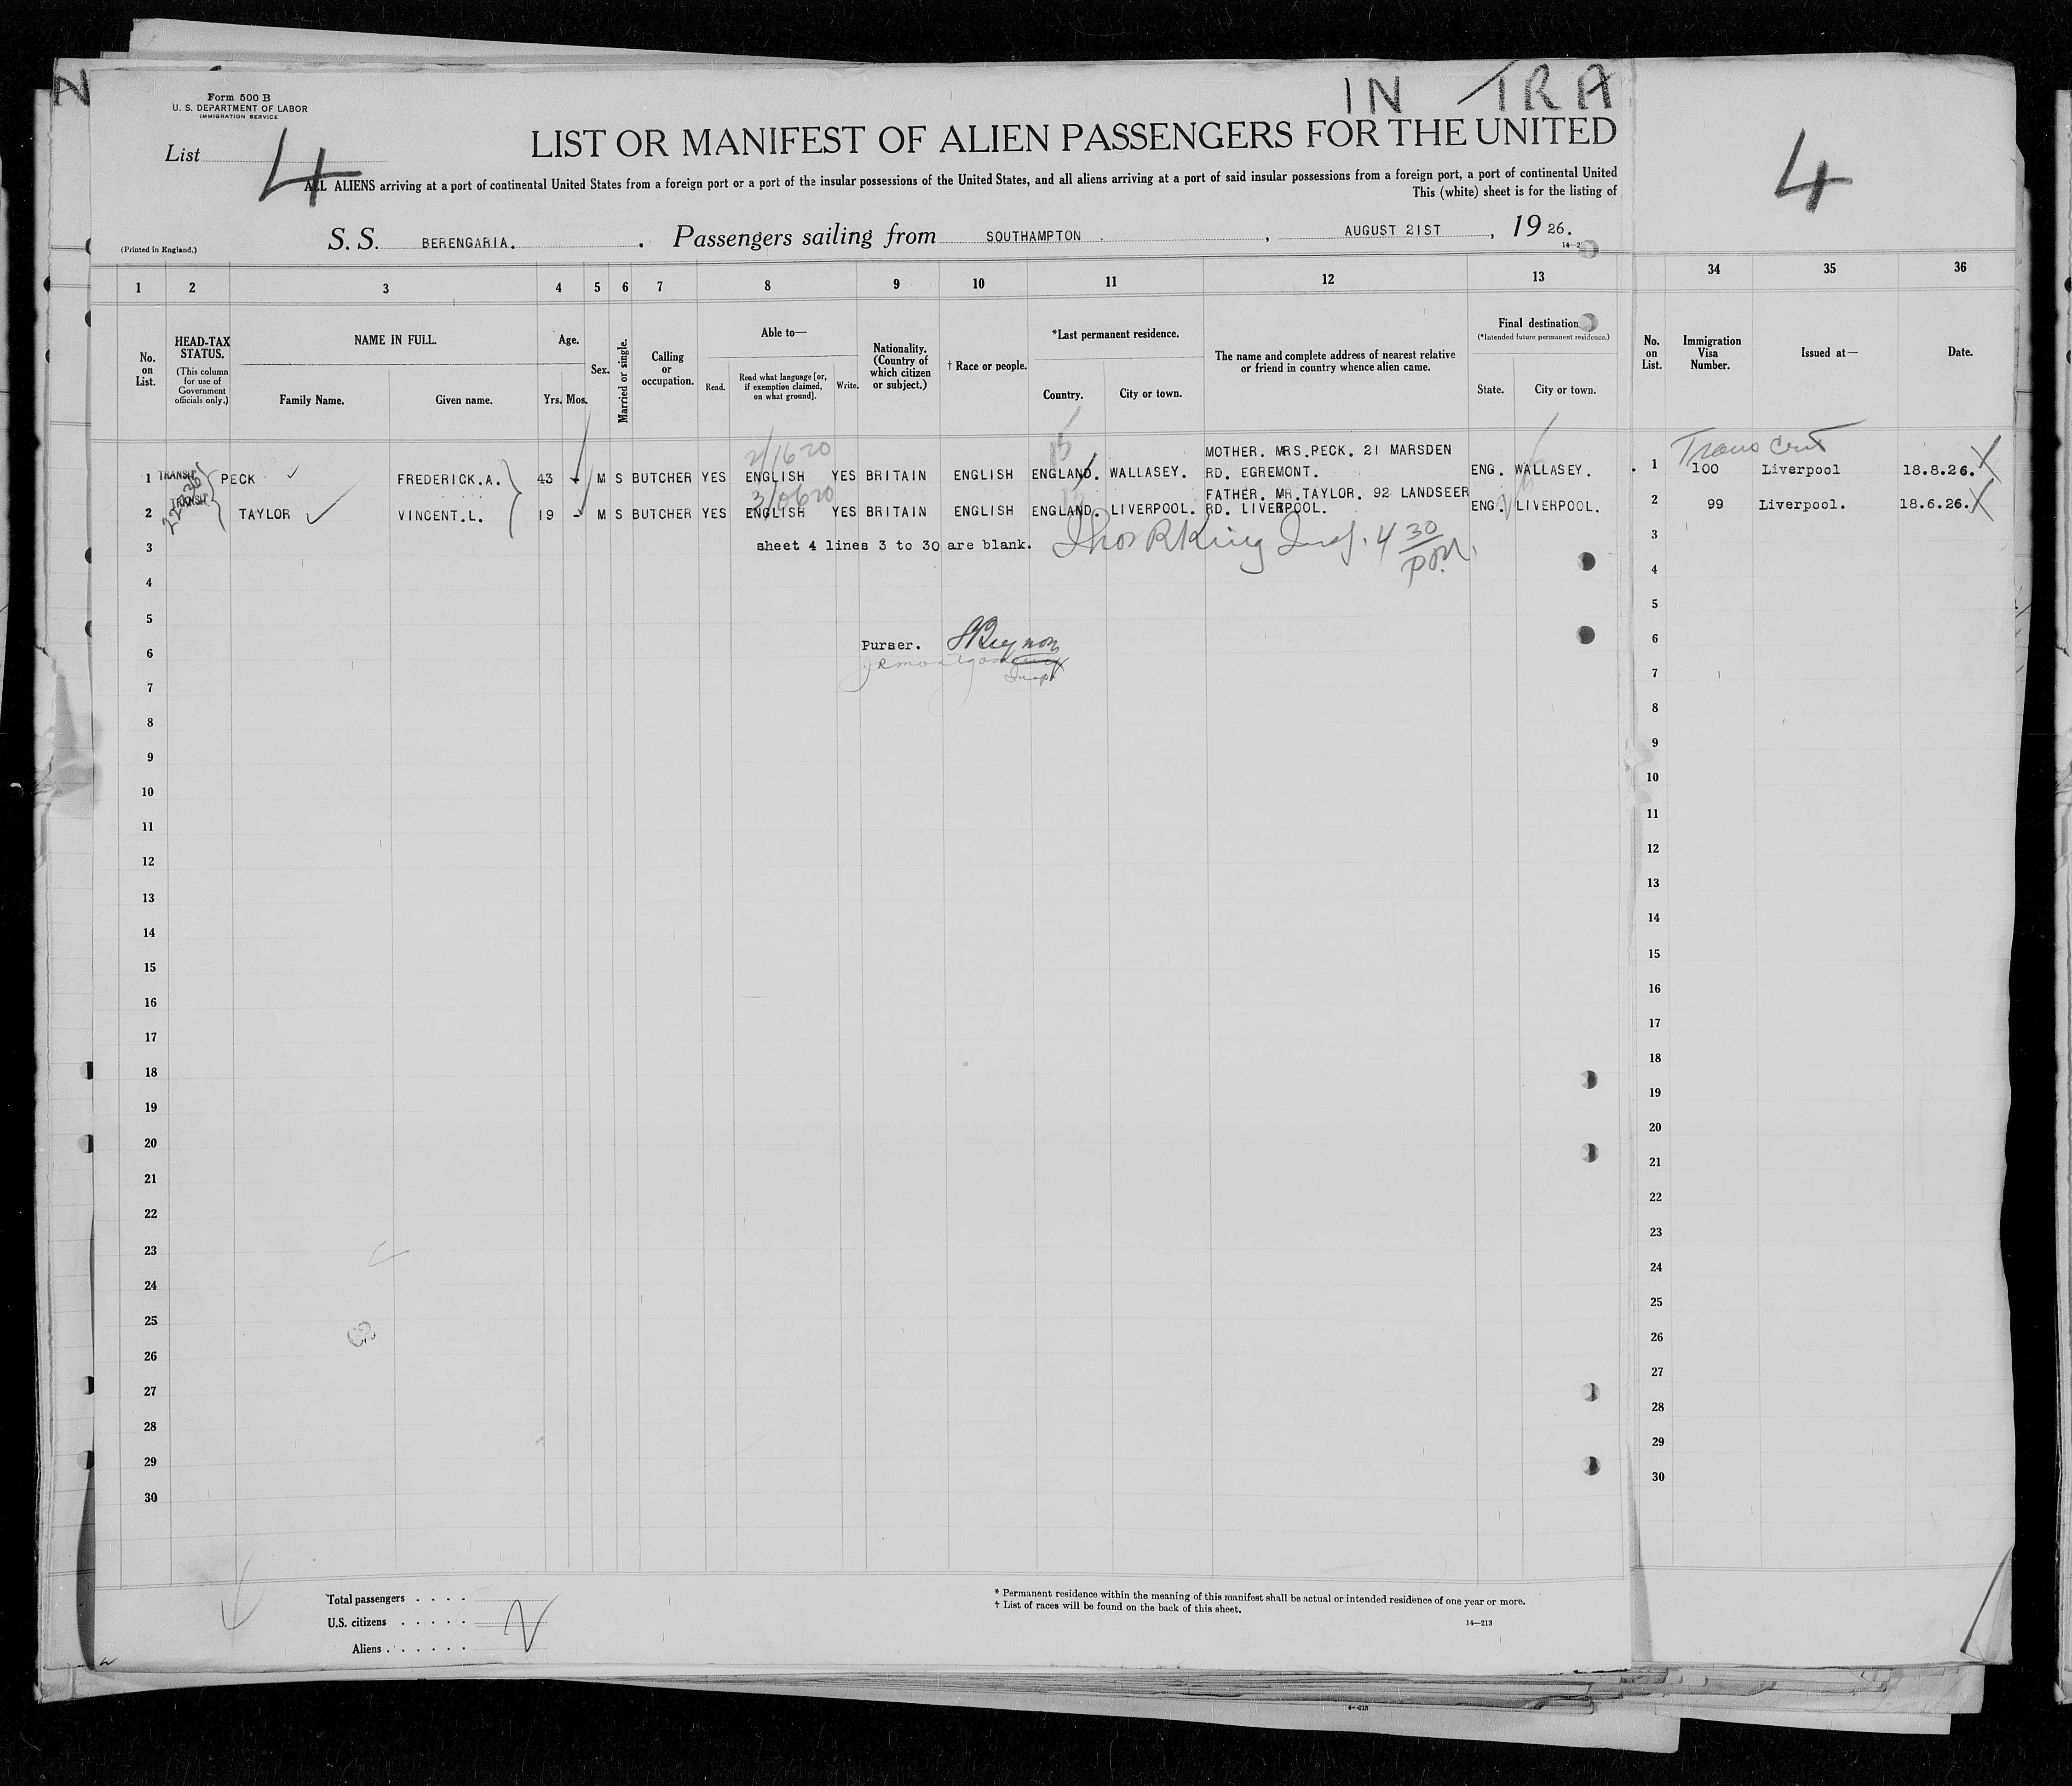 N
IN TRA
Form 500 B
U. S. DEPARTMENT OF LABOR
IMMIGRATION SERVICE
LIST OR MANIFEST OF ALIEN PASSENGERS FOR THE UNITED
List 4
4
ALL ALIENS arriving at a port of continental United States from a foreign port or a port of the insular possessions of the United States, and all aliens arriving at a port of said insular possessions from a foreign port, a port of continental United
This (white) sheet is for the listing of
(Printed in England.)
S. S. BERENGARIA. . Passengers sailing from SOUTHAMPTON , AUGUST 21ST , 19 26.
1 2 3 4 5 6 7 8 9 10 11 12 13 34 35 36
No. on List.
HEAD-TAX STATUS.
(This column for use of Government officials only.)
NAME IN FULL.
Family Name. Given name.
Age.
Yrs. Mos.
Sex.
Married or single.
Calling or occupation.
Able to—
Read. Read what language [or, if exemption claimed, on what ground]. Write.
Nationality. (Country of which citizen or subject.)
† Race or people.
*Last permanent residence.
Country. City or town.
The name and complete address of nearest relative or friend in country whence alien came.
Final destination
(*Intended future permanent residence.)
State. City or town.
No. on List.
Immigration Visa Number.
Issued at—
Date.
Trans Cert
MOTHER. MRS.PECK. 21 MARSDEN
1 TRANSIT PECK FREDERICK.A. 43 - M S BUTCHER YES ENGLISH YES BRITAIN ENGLISH ENGLAND. WALLASEY. RD. EGREMONT. ENG. WALLASEY. 1 100 Liverpool 18.8.26.
FATHER. MR.TAYLOR. 92 LANDSEER
2 TRANSIT TAYLOR VINCENT.L. 19 - M S BUTCHER YES ENGLISH YES BRITAIN ENGLISH ENGLAND. LIVERPOOL. RD. LIVERPOOL. ENG. LIVERPOOL. 2 99 Liverpool. 18.6.26.
3 sheet 4 lines 3 to 30 are blank. Thos R King Insp. 4 30 P.M. 3
4 4
5 5
Purser.
6 6
Insp
7 7
8 8
9 9
10 10
11 11
12 12
13 13
14 14
15 15
16 16
17 17
18 18
19 19
20 20
21 21
22 22
23 23
24 24
25 25
26 26
27 27
28 28
29 29
30 30
Total passengers . . . .
U.S. citizens . . . . .
Aliens . . . . . .
* Permanent residence within the meaning of this manifest shall be actual or intended residence of one year or more.
† List of races will be found on the back of this sheet.
14—213